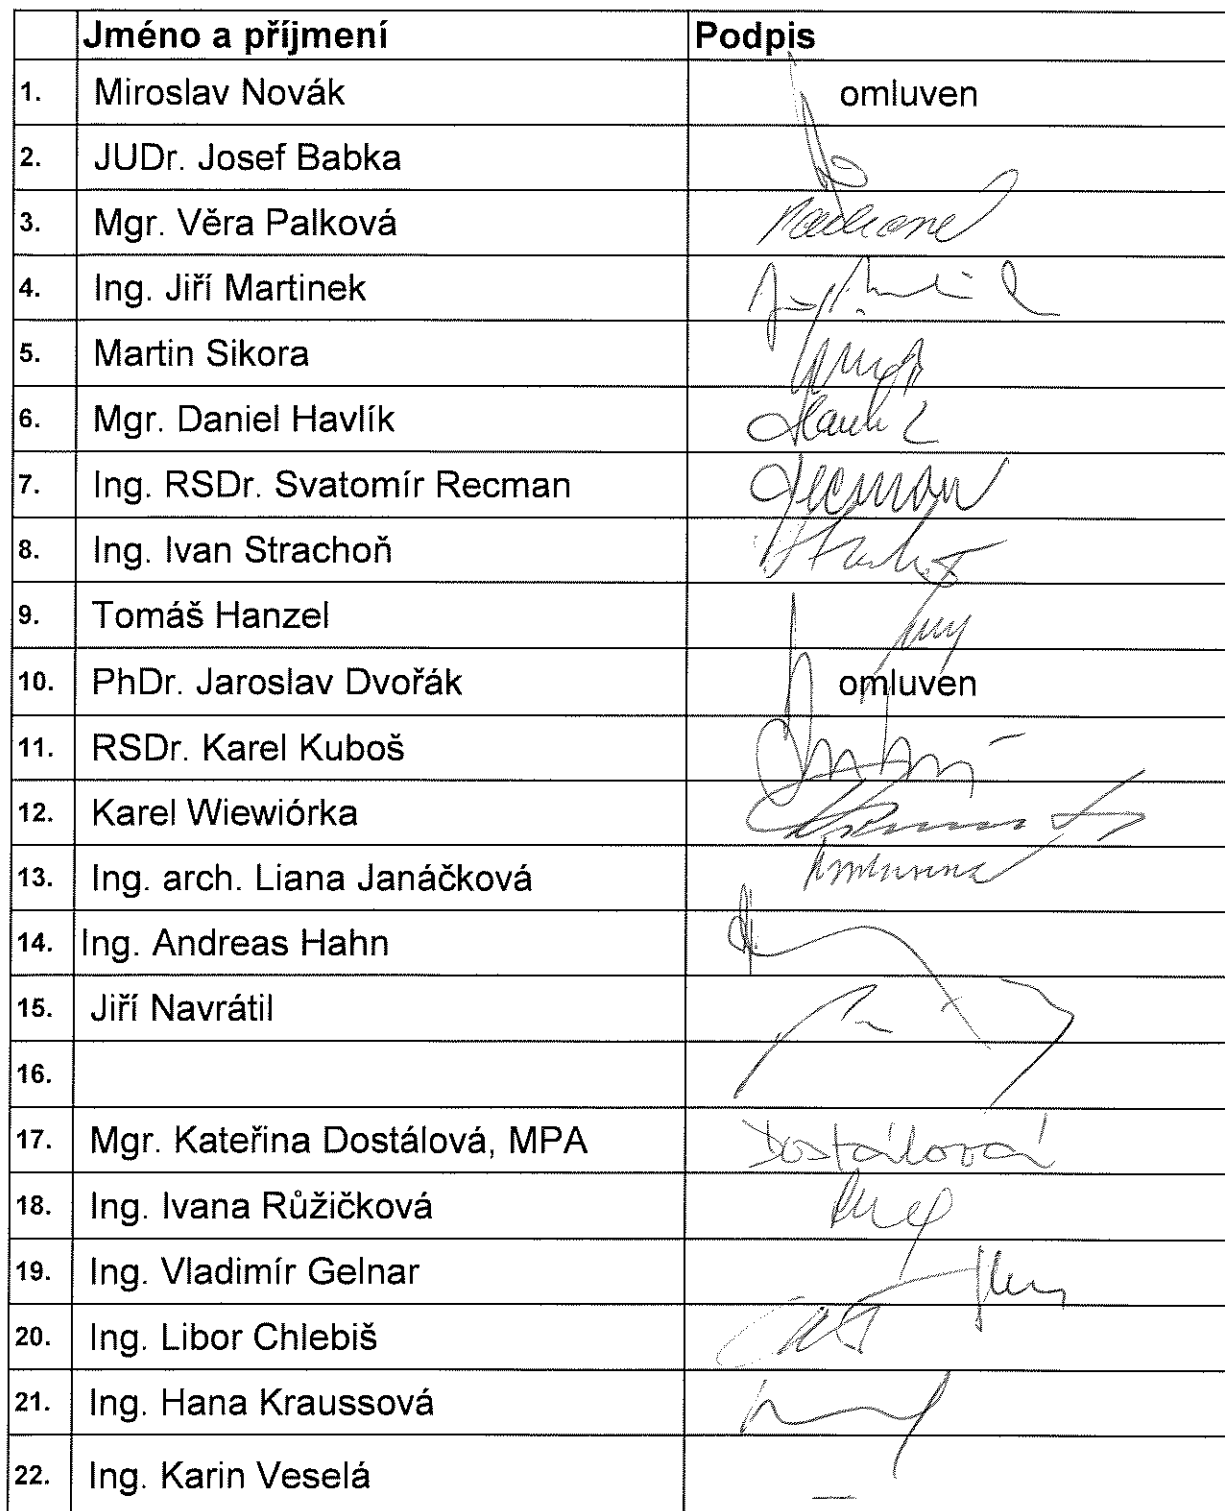 Jméno a příjmení Podpis
1. Miroslav Novák omluven
2. JUDr. Josef Babka
3. Mgr. Věra Palková
4. Ing. Jiří Martinek
5. Martin Sikora
6. Mgr. Daniel Havlík
7. Ing. RSDr. Svatomír Recman
8. Ing. Ivan Strachoň
9. Tomáš Hanzel
10. PhDr. Jaroslav Dvořák omluven
11. RSDr. Karel Kuboš
12. Karel Wiewiórka
13. Ing. arch. Liana Janáčková
14. Ing. Andreas Hahn
15. Jiří Navrátil
16.
17. Mgr. Kateřina Dostálová, MPA Dostálová
18. Ing. Ivana Růžičková
19. Ing. Vladimír Gelnar
20. Ing. Libor Chlebiš
21. Ing. Hana Kraussová
22. Ing. Karin Veselá